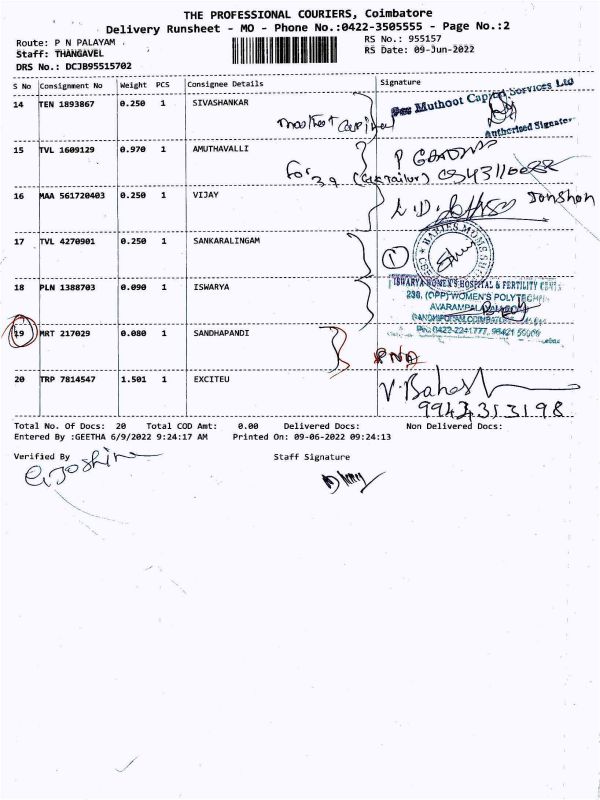 THE PROFESSIONAL COURIERS, Coimbatore
Delivery Runsheet - MO - Phone No.:0422-3505555 - Page No.:2
Route: P N PALAYAM
RS No.: 955157
Staff: THANGAVEL
RS Date: 09-Jun-2022
DRS No.: DCJB95515702
S No Consignment No Weight PCS Consignee Details Signature
14 TEN 1893867 0.250 1 SIVASHANKAR
For Muthoot Capital Services Ltd
Authorised Signator
15 TVL 1609129 0.970 1 AMUTHAVALLI
16 MAA 561720403 0.250 1 VIJAY
17 TVL 4270901 0.250 1 SANKARALINGAM
1
18 PLN 1388703 0.090 1 ISWARYA
ISWARYA WOMEN'S HOSPITAL & FERTILITY
230, (OPP) WOMEN'S POLYTECHNIC
19 MRT 217029 0.080 1 SANDHAPANDI
PNA
20 TRP 7814547 1.501 1 EXCITEU
Total No. Of Docs: 20 Total COD Amt: 0.00 Delivered Docs: Non Delivered Docs:
Entered By :GEETHA 6/9/2022 9:24:17 AM Printed On: 09-06-2022 09:24:13
Verified By Staff Signature